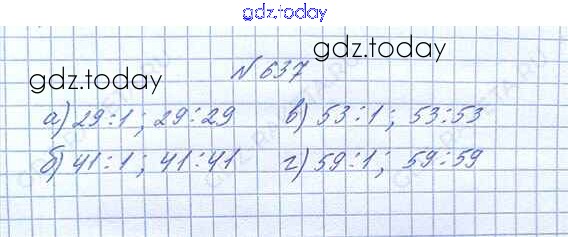 gdz.today
gdz.today
№ 637
gdz.today
а) 29:1; 29:29   в) 53:1; 53:53
б) 41:1; 41:41   г) 59:1; 59:59